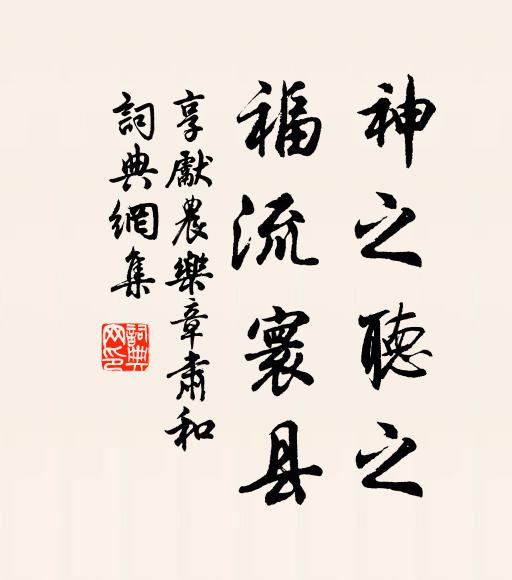 神之聽之
福流寰县
享獻農樂章肅和
詞典網集
詞典網印